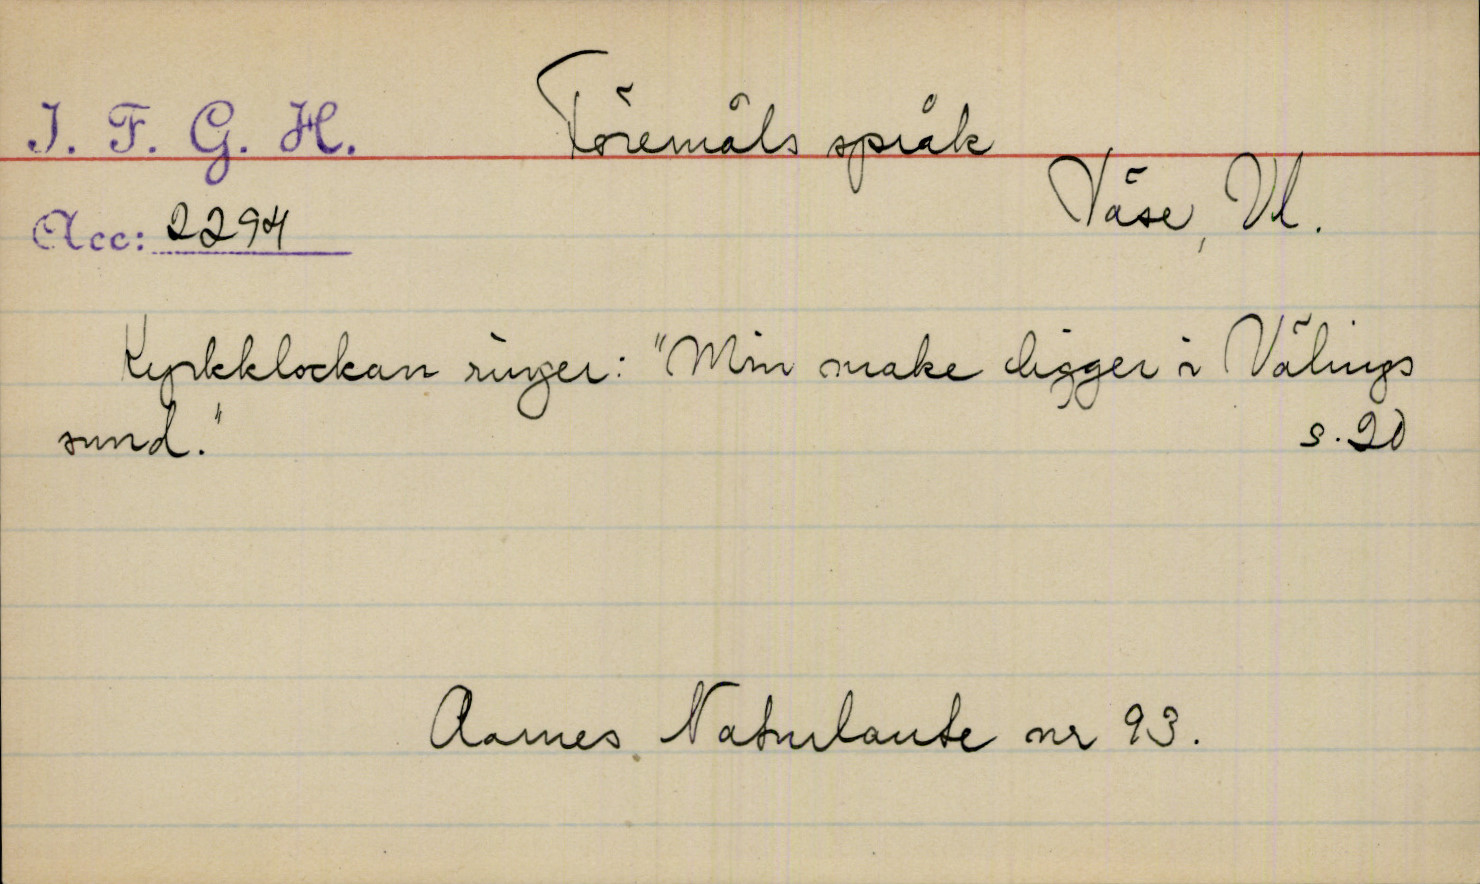 I. F. G. H.
Föremåls språk
Väse, Vl.
Acc: 2294
Kyrkklockan ringer: "Min make ligger i Välings
sund."
s. 20
Aarnes Naturlaute nr 93.